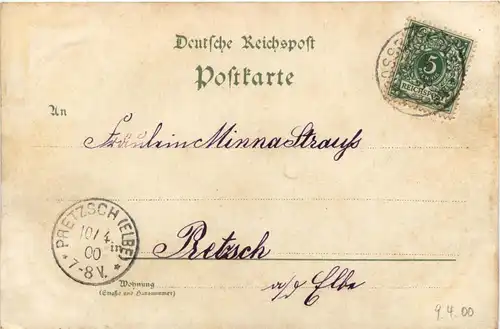 Deutsche Reichspost
Postkarte
5
An
Fräulein Minna Strauß
PRETZSCH (ELBE)
10/4
00
* 7-8 V. *
in
Pretzsch
Wohnung
(Straße und Hausnummer)
a/d Elbe
9.4.00